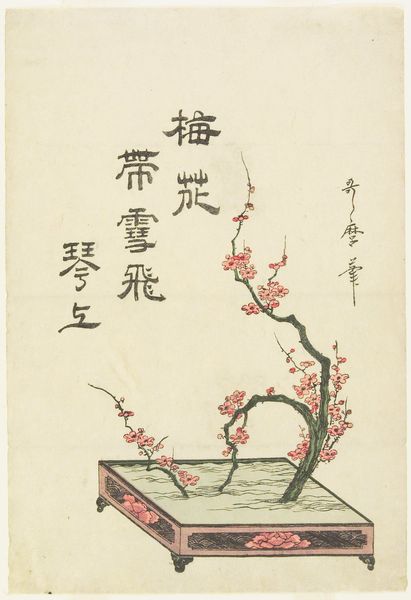 哥麿筆
梅花
帶雪飛
琴上